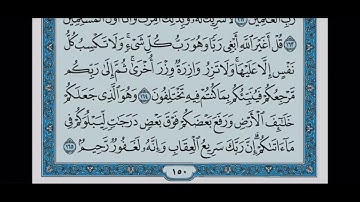 رَبِّ ٱلْعَٰلَمِينَ ١٦٢ لَا شَرِيكَ لَهُۥ وَبِذَٰلِكَ أُمِرْتُ وَأَنَا۠ أَوَّلُ ٱلْمُسْلِمِينَ
١٦٣ قُلْ أَغَيْرَ ٱللَّهِ أَبْغِى رَبًّا وَهُوَ رَبُّ كُلِّ شَىْءٍ وَلَا تَكْسِبُ كُلُّ
نَفْسٍ إِلَّا عَلَيْهَا وَلَا تَزِرُ وَازِرَةٌ وِزْرَ أُخْرَىٰ ثُمَّ إِلَىٰ رَبِّكُم
مَّرْجِعُكُمْ فَيُنَبِّئُكُم بِمَا كُنتُمْ فِيهِ تَخْتَلِفُونَ ١٦٤ وَهُوَ ٱلَّذِى جَعَلَكُمْ
خَلَٰٓئِفَ ٱلْأَرْضِ وَرَفَعَ بَعْضَكُمْ فَوْقَ بَعْضٍ دَرَجَٰتٍ لِّيَبْلُوَكُمْ فِى
مَآ ءَاتَىٰكُمْ إِنَّ رَبَّكَ سَرِيعُ ٱلْعِقَابِ وَإِنَّهُۥ لَغَفُورٌ رَّحِيمٌۢ ١٦٥
١٥٠